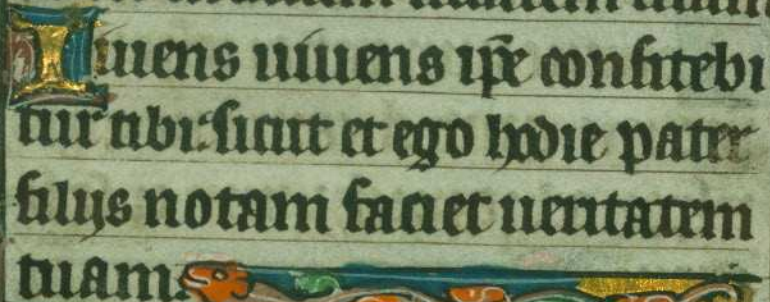 Iuuens uiuens ip̄e confitebi
tur tibi: sicut et ego hodie pater
filijs notam faciet ueritatem
tuam.